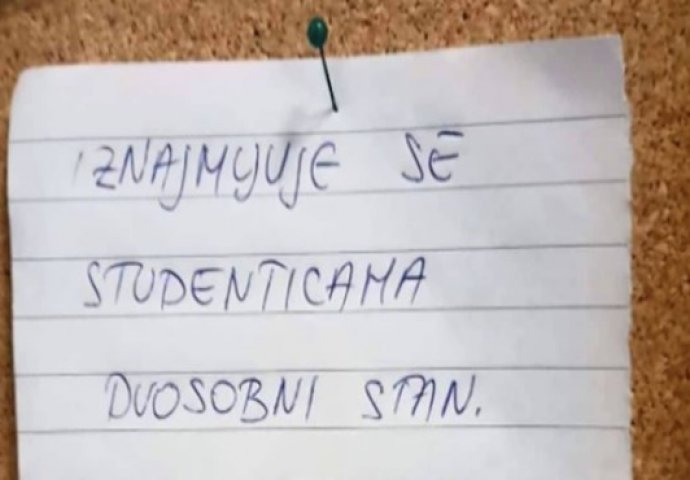 IZNAJMYUJE SE
STUDENTICAMA
DVOSOBNI STAN.